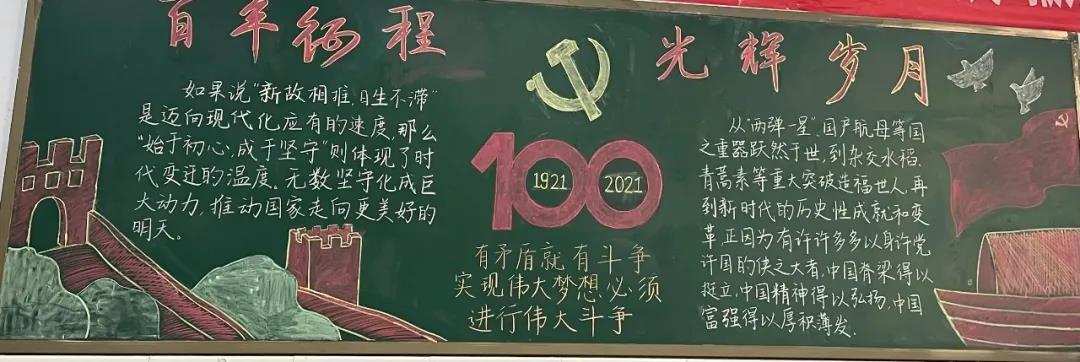 百年征程
光辉岁月
如果说"新故相推,日生不滞"
是迈向现代化应有的速度,那么
"始于初心,成于坚守"则体现了时
代变迁的温度。无数坚守化成巨
大动力,推动国家走向更美好的
明天。
100
1921 2021
有矛盾就有斗争
实现伟大梦想,必须
进行伟大斗争
从"两弹一星"、国产航母等国
之重器跃然于世,到杂交水稻、
青蒿素等重大突破造福世人,再
到新时代的历史性成就和变
革,正因为有许许多多以身许党
许国的侠之大者,中国脊梁得以
挺立,中国精神得以弘扬,中国
富强得以厚积薄发。